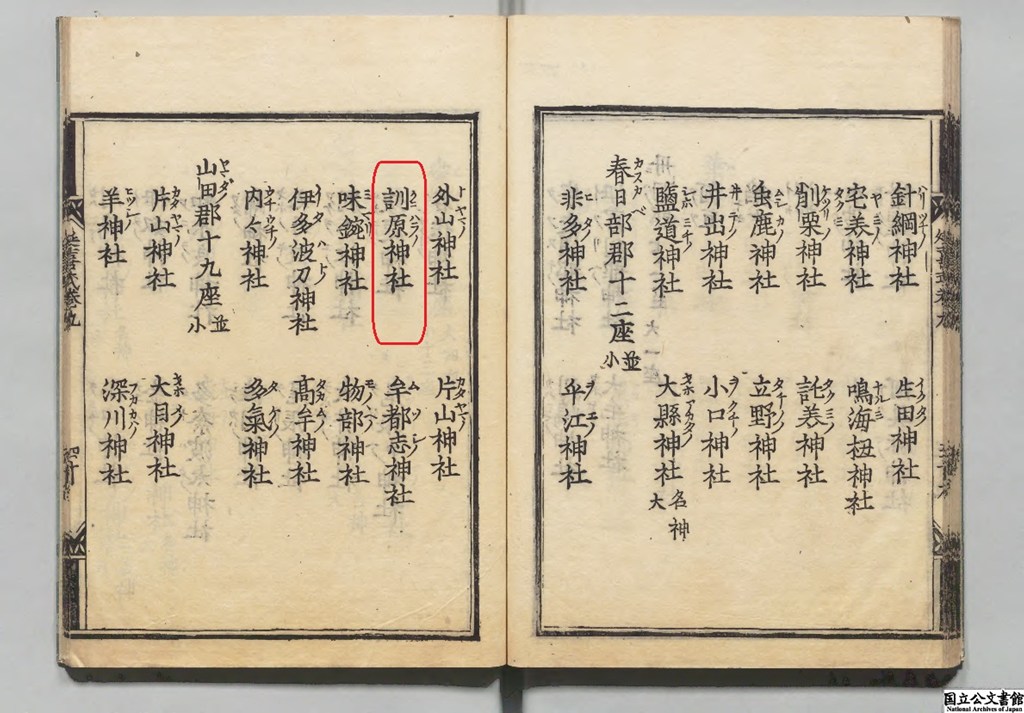 針綱神社
生田神社
宅美神社
鳴海杻神社
削栗神社
託美神社
虫鹿神社
立野神社
井出神社
小口神社
鹽道神社
大縣神社 名神大
春日部郡十二座 並小
非多神社
乎江神社
外山神社
片山神社
訓原神社
牟都志神社
味鋺神社
物部神社
伊多波刀神社
高牟神社
内々神社
多氣神社
山田郡十九座 並小
片山神社
大目神社
羊神社
深川神社
国立公文書館
National Archives of Japan